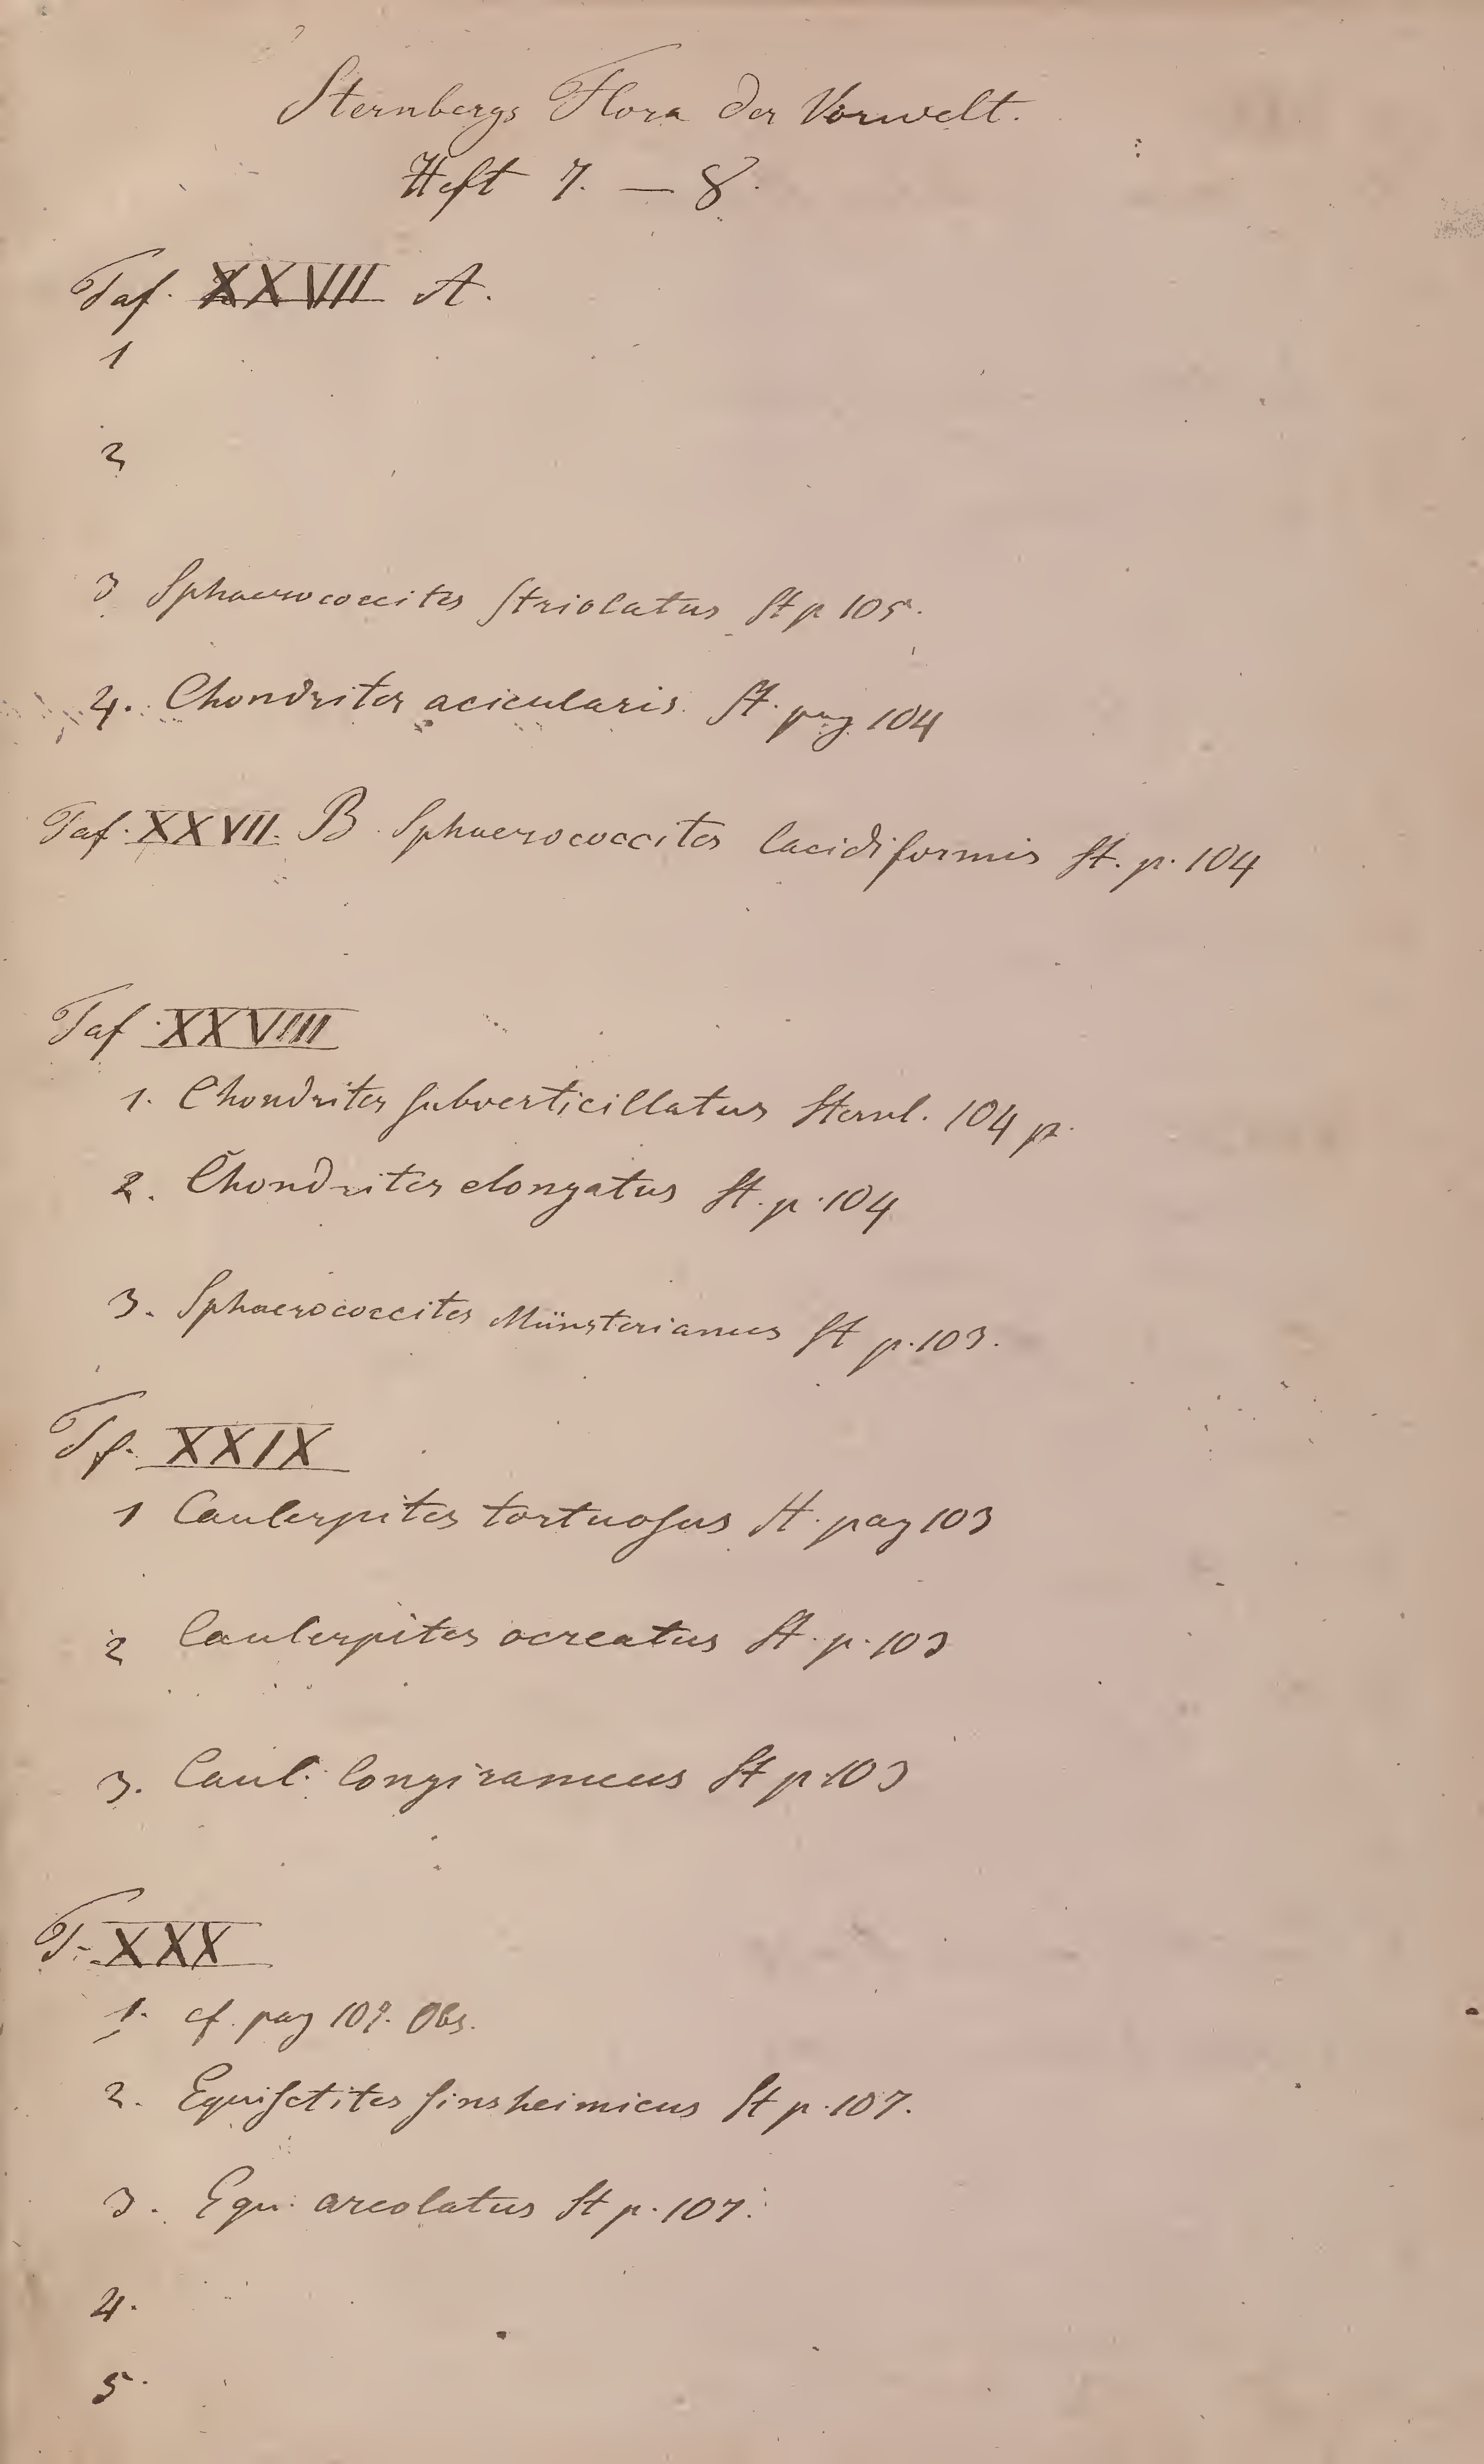 Sternbergs Flora der Vorwelt.
Heft 7. — 8.
Taf. XXVII A.
1
2
3 Sphaerococcites striolatus St p 105.
4. Chondrites acicularis St. pag 104
Taf. XXVII. B Sphaerococcites lacidiformis St. p. 104
Taf XXVIII
1. Chondrites subverticillatus Sternb. 104 p.
2. Chondrites elongatus St. p. 104
3. Sphaerococcites Münsterianus St p. 103.
Tf. XXIX
1 Caulerpites tortuosus St. pag 103
2 Caulerpites ocreatus St. p. 103
3. Caul. longirameus St p 103
T. XXX
1. cf. pag 109. Obs.
2. Equisetites sinsheimicus St p. 107.
3. Equ. areolatus St p. 107.
4.
5.